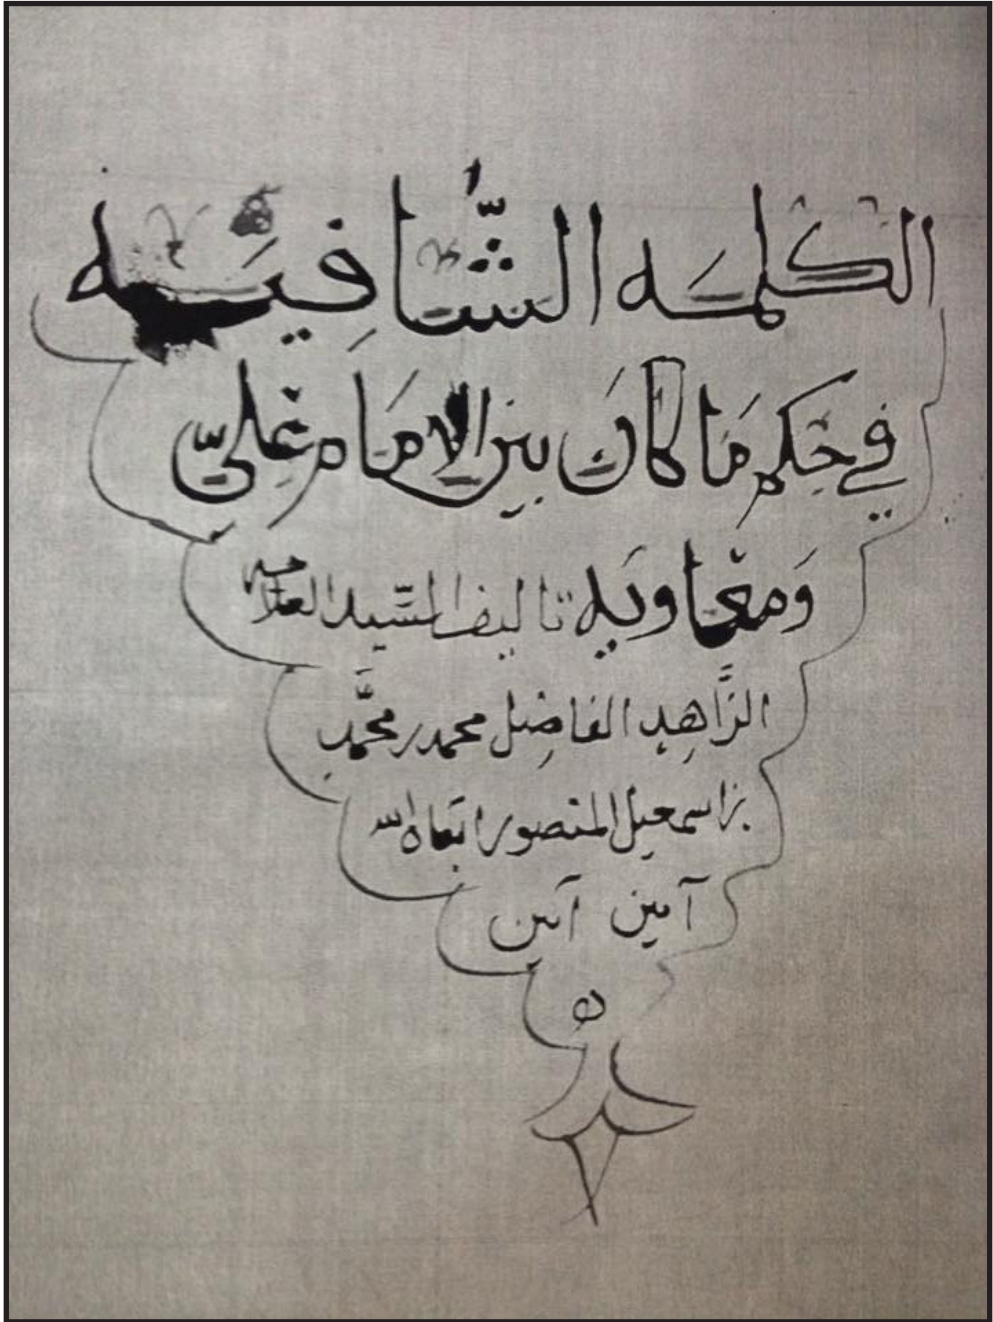 الكلمه الشَّافِيَه
في حكم مَا كَانَ بين الإمَام عَليّ
وَمعَاويه تاليف السَّيد العلامه
الزَّاهد الفاضل محمد بن محمَّد
بن اسمعيل المنصور ابقاه الله
آمين آمين
ه